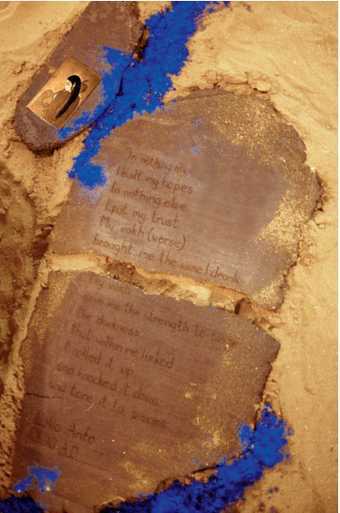 In nothing
I built my hopes
In nothing else
I put my trust
My nakh (verse)
brought me the wine I drank
gave me the strength to
the darkness
that within me lurked
I rolled it up
and knocked it down
and tore it to pieces